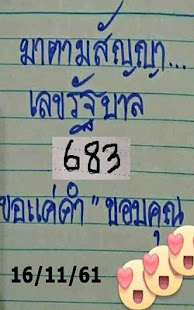 มาตามสัญญา...
เลขรัฐบาล
683
ขอแค่คำ "ขอบคุณ
16/11/61